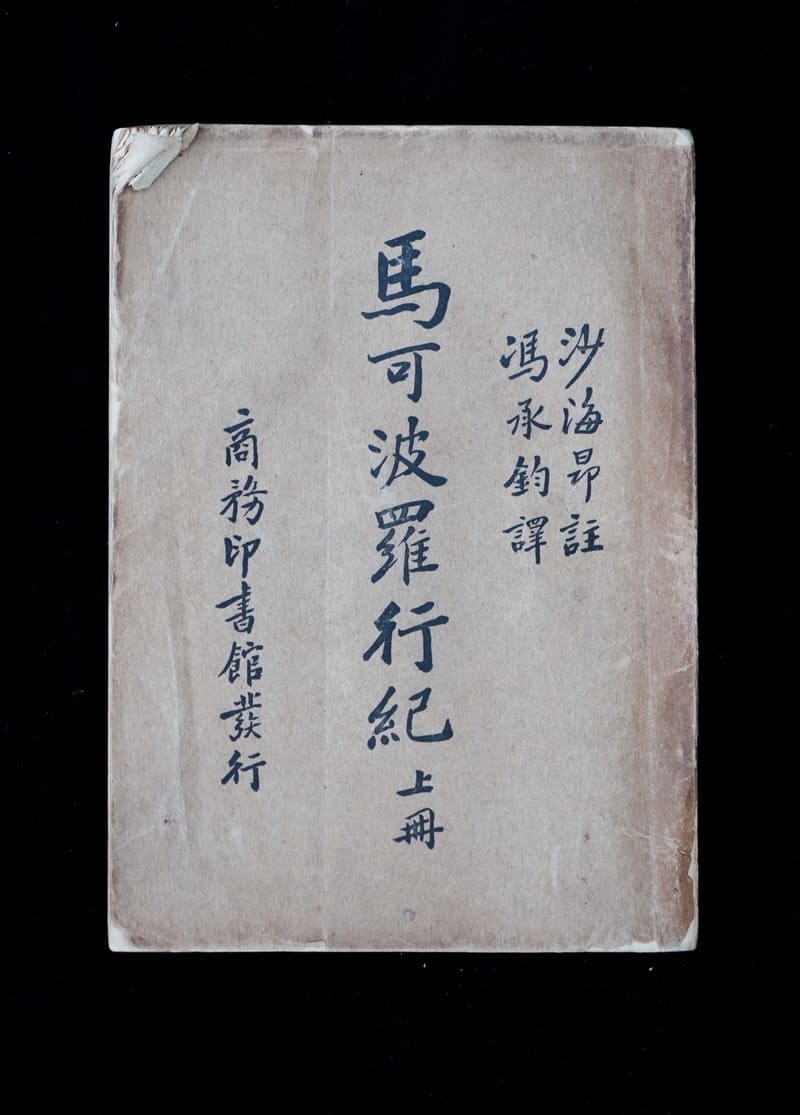 沙海昂註
馮承鈞譯
馬可波羅行紀 上冊
商務印書館發行